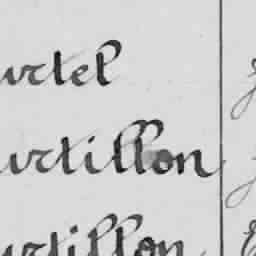 urtel
urtillon
urtillon